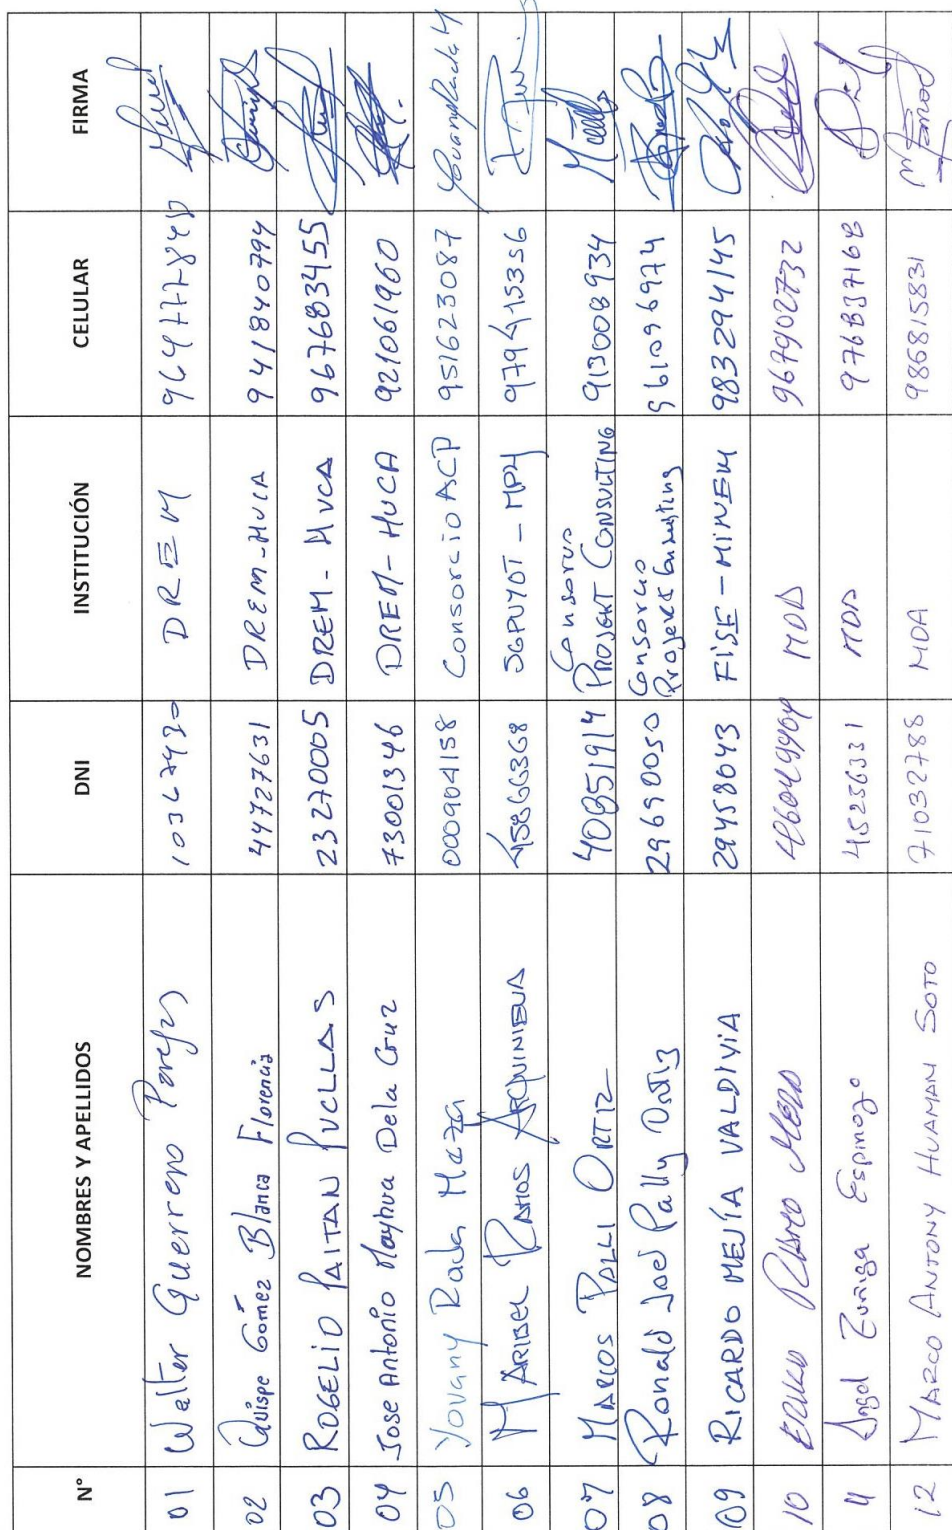 N° NOMBRES Y APELLIDOS DNI INSTITUCIÓN CELULAR FIRMA
01 Walter Guerrero DREM
02 Quispe Gómez Blanca Florencia 44727631 DREM-HVCA 941840794
03 ROGELIO PAITAN PUCLLAS 23270005 DREM-HVCA 967683455
04 Jose Antonio Mayhua Dela Cruz 73001346 DREM-HUCA 921061960
05 Yovany Rada Maza 000904158 Consorcio ACP 951623087
06 MARIBEL RAMOS 45866368 SGPUYOT-MPH
07 MARCOS PALLI ORTIZ 40851914 Consorcio PROJEKT CONSULTING 913008934
08 Ronald Joel Pally Ortiz 29690050 Consorcio Projekt Consulting 961096974
09 RICARDO MEJÍA VALDIVIA 29458643 FISE-MINEM 983294145
10 MDA 967902732
11 Angel Zuñiga Espinozo 45256331 MDA
12 MARCO ANTONY HUAMAN SOTO 71032788 MDA 986815831